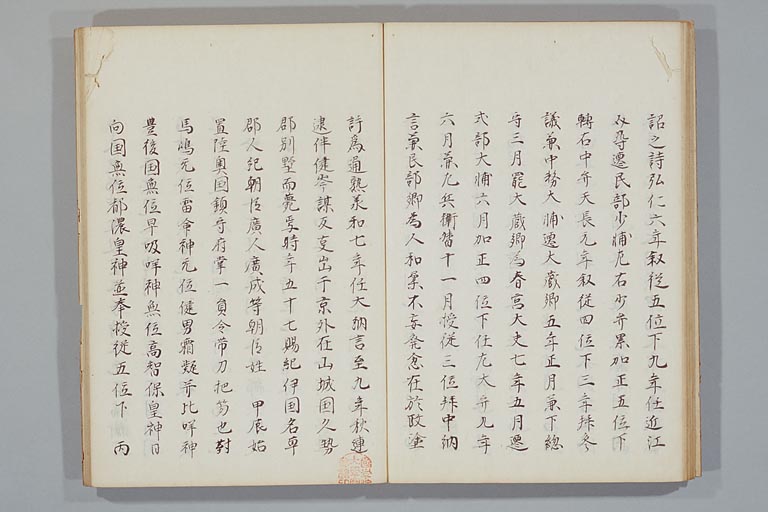 詔之詩弘仁六年叙従五位下九年任近江
介尋遷民部少輔左右少弁累加正五位下
轉右中弁天長九年叙従四位下三年拜参
議兼中務大輔遷大蔵卿五年正月兼下総
守三月罷大蔵卿為春宮大夫七年五月遷
式部大輔六月加正四位下任左大弁九年
六月兼左兵衛督十一月授従三位拜中納
言兼民部卿為人和柔不妄発忿在於政塗
許為通熟義和七年任大納言至九年秋連
逮伴健岑謀反支出于京外在山城国久勢
郡別墅而薨爰時年五十七賜紀伊国名草
郡人紀朝臣廣人廣成等朝臣姓 甲辰始
置陸奥国鎮守府掌一負令帯刀把笏也對
馬嶋无位雷命神无位健男霜凝并比咩神
豊後国無位早吸咩神無位高智保皇神日
向国無位都濃皇神並奉授従五位下 丙